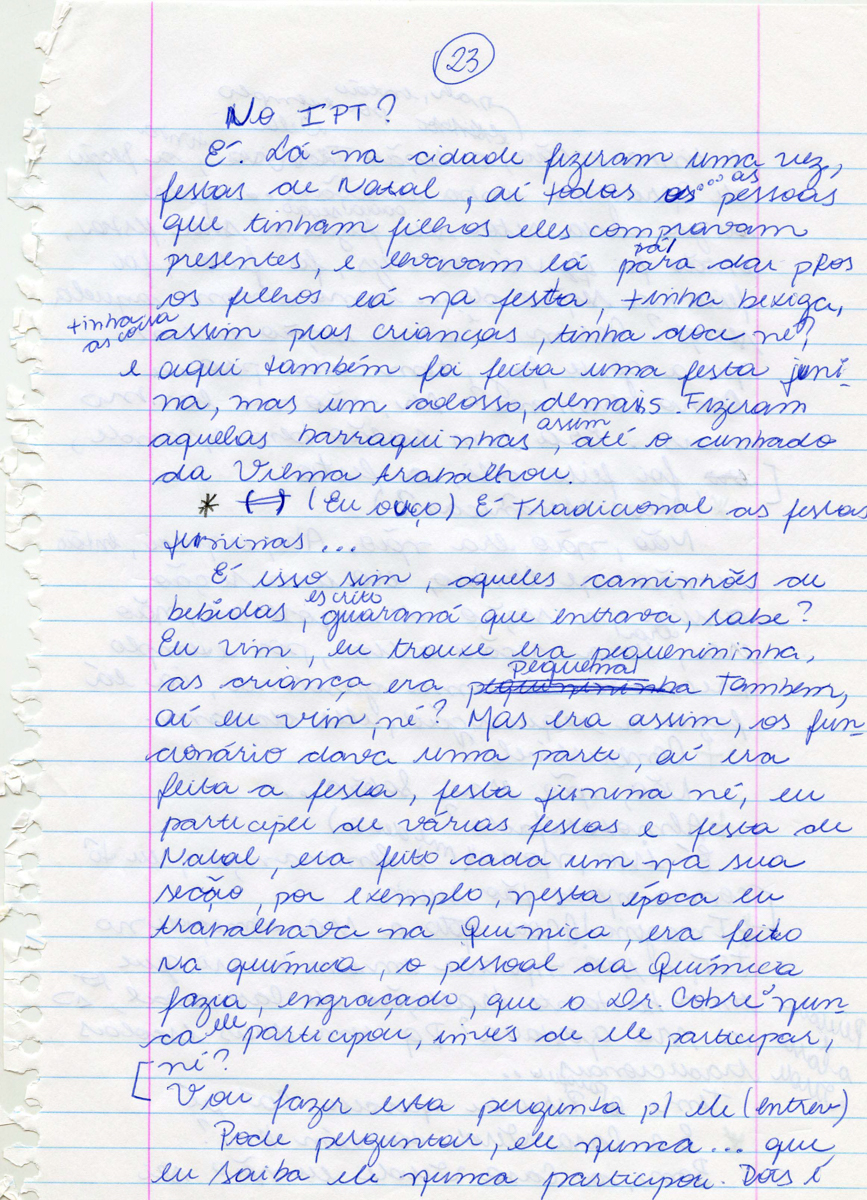 23
No IPT?
É. Lá na cidade fizeram uma vez,
festas de Natal, aí todas as... as pessoas
que tinham filhos eles compravam
presentes, e levavam lá para dar pros
os filhos lá na festa, tinha bexiga,
tinha as coisa
assim pras crianças, tinha doce né?
e aqui também foi feita uma festa juni-
na, mas um colosso, demais. Fizeram
aquelas barraquinhas, assim, até o cunhado
da Vilma trabalhou.
* (Eu ouço) É Tradicional as festas
juninas...
É isso sim, aqueles caminhões de
bebidas, escrito guaraná que entrava, sabe?
Eu vim, eu trouxe era pequenininha,
as criança era pequena Também,
aí eu vim, né? Mas era assim, os fun-
cionário dava uma parte, aí era
feita a festa, festa junina né, eu
participei de várias festas e festa de
Natal, era feito cada um na sua
secção, por exemplo, nesta época eu
trabalhava na Química, era feito
na química, o pessoal da Química
fazia, engraçado, que o Dr. Cobre nun-
ca ele participou, invés de ele participar,
né?
[ Vou fazer esta pergunta p/ ele (entrev)
Pode perguntar, ele nunca... que
eu saiba ele nunca participou. Dois é